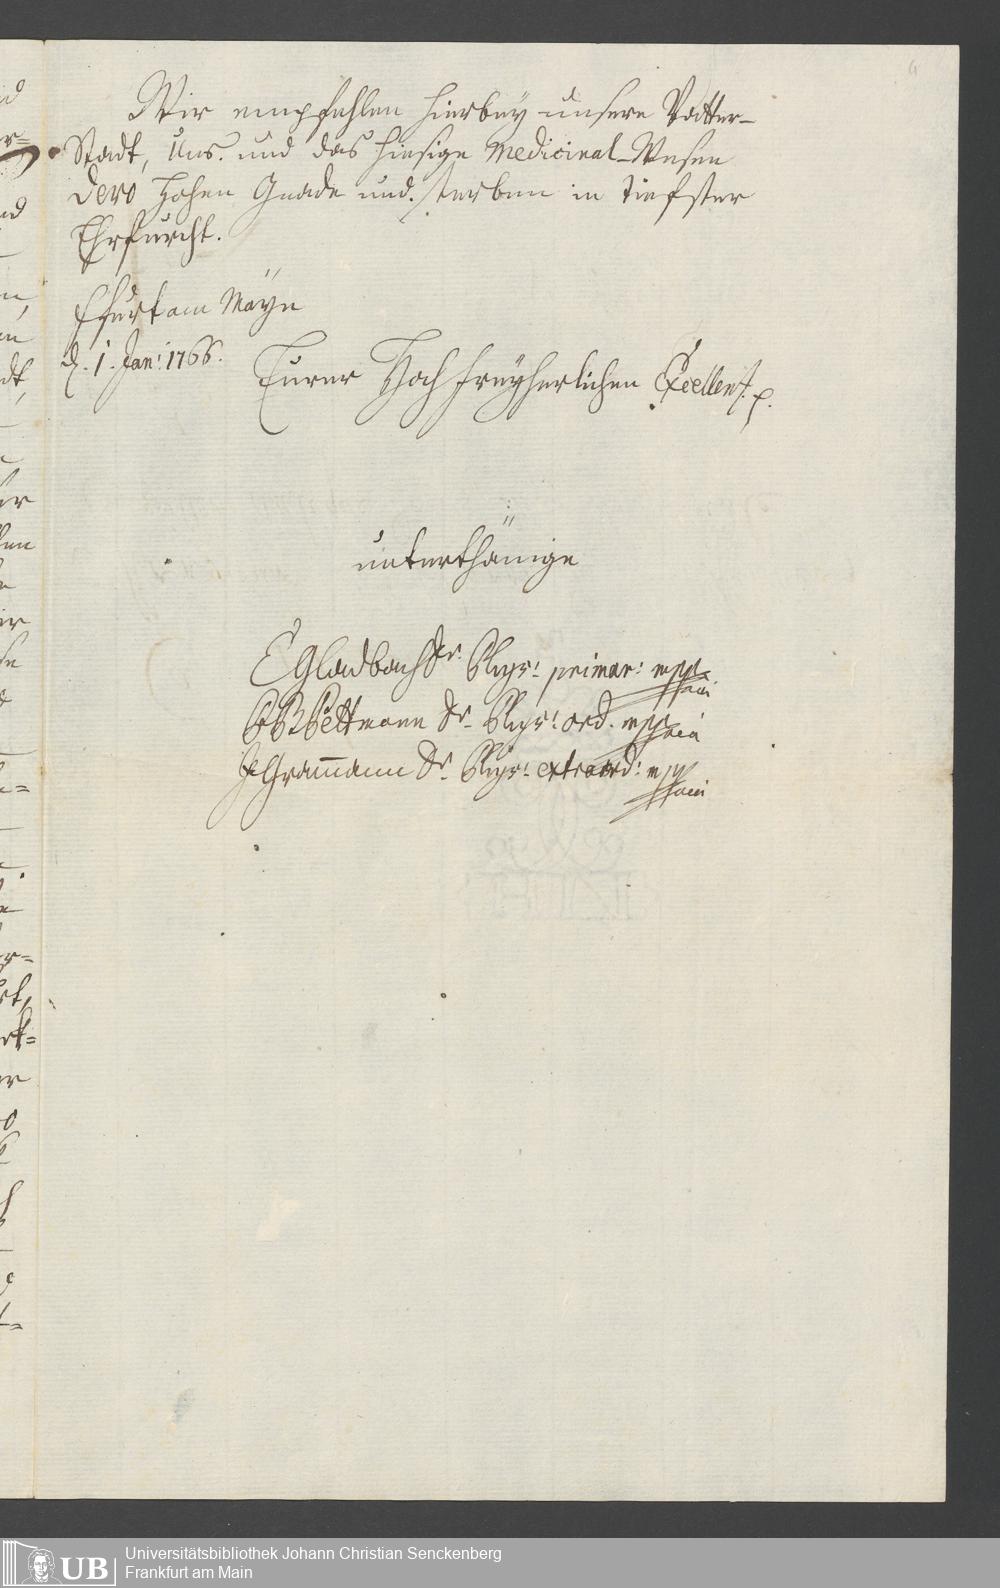 4
Wir empfehlen hierbey unsere Vatter-
Stadt, Uns. und das hiesige Medicinal-Wesen
Dero Hohen Gnade und. sterben in tiefster
Ehrfurcht.
Ffurt am Mäyn
d. 1. Jan: 1766.
Eurer Hoch freyherlichen Excellentz. p.
unterthänige
EGladbach Dr. Phys: primar: mppria
Pettmann Dr. Phys: ord. mppria
Gramann Dr. Phys: extraord: mppria
UB
Universitätsbibliothek Johann Christian Senckenberg
Frankfurt am Main